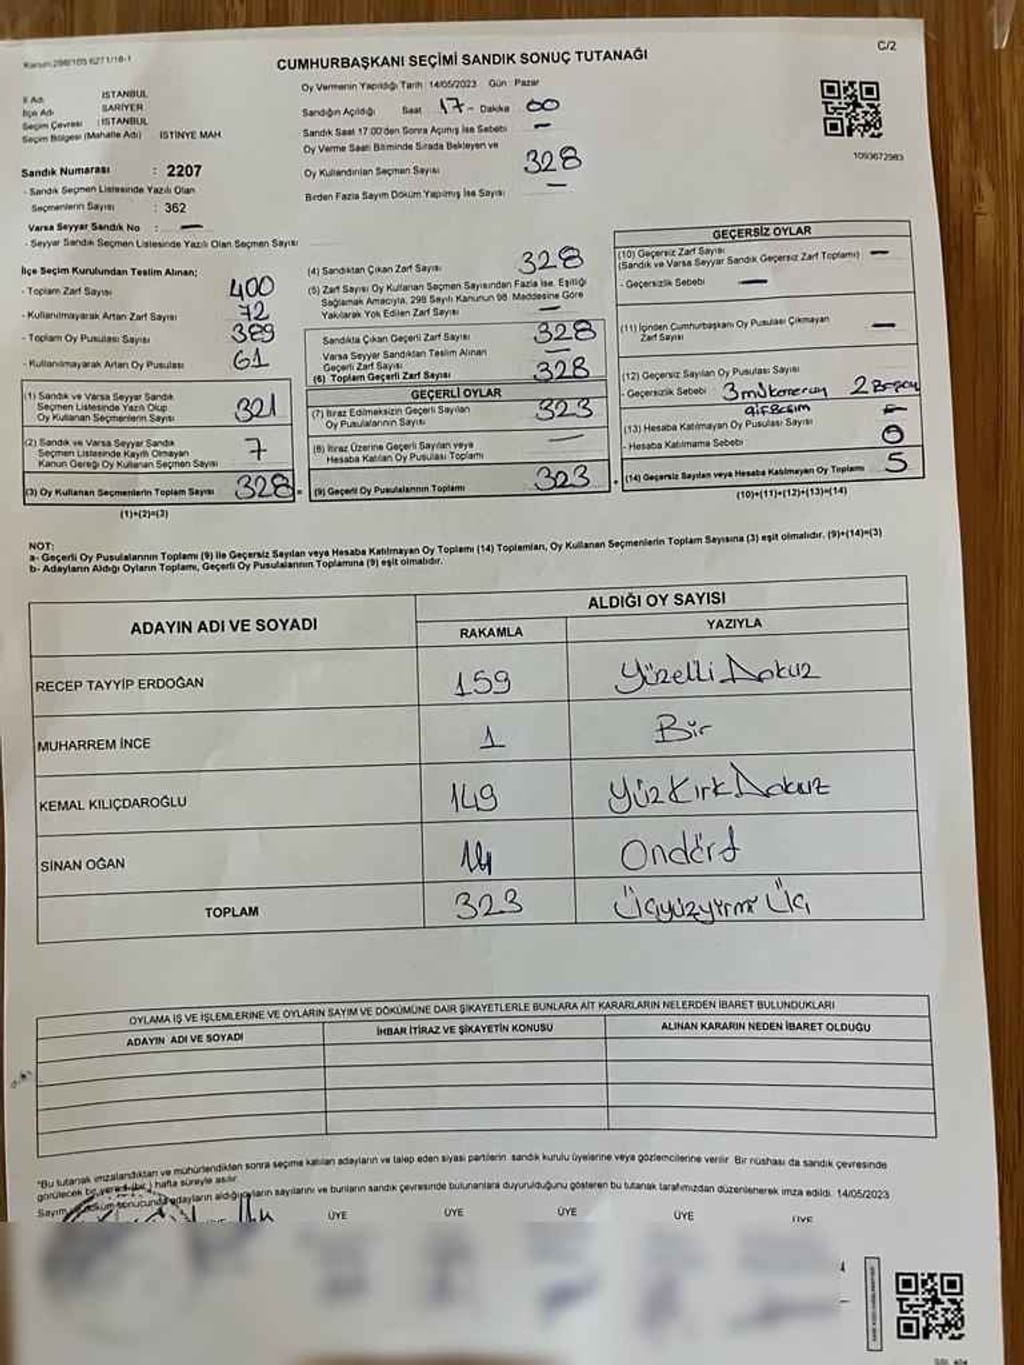 Kanun:298/105 6271/18-1
C/2
CUMHURBAŞKANI SEÇİMİ SANDIK SONUÇ TUTANAĞI
İl Adı : İSTANBUL
İlçe Adı : SARIYER
Seçim Çevresi : İSTANBUL
Seçim Bölgesi (Mahalle Adı) İSTİNYE MAH.
Sandık Numarası : 2207
- Sandık Seçmen Listesinde Yazılı Olan
Seçmenlerin Sayısı : 362
Varsa Seyyar Sandık No : —
- Seyyar Sandık Seçmen Listesinde Yazılı Olan Seçmen Sayısı
Oy Vermenin Yapıldığı Tarih 14/05/2023 Gün : Pazar
Sandığın Açıldığı Saat 17 - Dakika 00
Sandık Saat 17.00'den Sonra Açılmış İse Sebebi —
Oy Verme Saati Bitiminde Sırada Bekleyen ve
Oy Kullandırılan Seçmen Sayısı 328
Birden Fazla Sayım Döküm Yapılmış İse Sayısı —
1093672983
İlçe Seçim Kurulundan Teslim Alınan;
- Toplam Zarf Sayısı 400
- Kullanılmayarak Artan Zarf Sayısı 72
- Toplam Oy Pusulası Sayısı 389
- Kullanılmayarak Artan Oy Pusulası 61
(1) Sandık ve Varsa Seyyar Sandık
Seçmen Listesinde Yazılı Olup
Oy Kullanan Seçmenlerin Sayısı 321
(2) Sandık ve Varsa Seyyar Sandık
Seçmen Listesinde Kayıtlı Olmayan
Kanun Gereği Oy Kullanan Seçmen Sayısı 7
(3) Oy Kullanan Seçmenlerin Toplam Sayısı 328
(1)+(2)=(3)
(4) Sandıktan Çıkan Zarf Sayısı 328
(5) Zarf Sayısı Oy Kullanan Seçmen Sayısından Fazla ise, Eşitliği
Sağlamak Amacıyla, 298 Sayılı Kanunun 98. Maddesine Göre
Yakılarak Yok Edilen Zarf Sayısı —
Sandıkta Çıkan Geçerli Zarf Sayısı 328
Varsa Seyyar Sandıktan Teslim Alınan
Geçerli Zarf Sayısı —
(6) Toplam Geçerli Zarf Sayısı 328
GEÇERLİ OYLAR
(7) İtiraz Edilmeksizin Geçerli Sayılan
Oy Pusulalarının Sayısı 323
(8) İtiraz Üzerine Geçerli Sayılan veya
Hesaba Katılan Oy Pusulası Toplamı —
= (9) Geçerli Oy Pusulalarının Toplamı 323
GEÇERSİZ OYLAR
(10) Geçersiz Zarf Sayısı —
(Sandık ve Varsa Seyyar Sandık Geçersiz Zarf Toplamı)
- Geçersizlik Sebebi —
(11) İçinden Cumhurbaşkanı Oy Pusulası Çıkmayan
Zarf Sayısı —
(12) Geçersiz Sayılan Oy Pusulası Sayısı
- Geçersizlik Sebebi 3 mükerrer 2
(13) Hesaba Katılmayan Oy Pusulası Sayısı
- Hesaba Katılmama Sebebi 0
+ (14) Geçersiz Sayılan veya Hesaba Katılmayan Oy Toplamı 5
(10)+(11)+(12)+(13)=(14)
NOT:
a- Geçerli Oy Pusulalarının Toplamı (9) ile Geçersiz Sayılan veya Hesaba Katılmayan Oy Toplamı (14) Toplamları, Oy Kullanan Seçmenlerin Toplam Sayısına (3) eşit olmalıdır. (9)+(14)=(3)
b- Adayların Aldığı Oyların Toplamı, Geçerli Oy Pusulalarının Toplamına (9) eşit olmalıdır.
ADAYIN ADI VE SOYADI ALDIĞI OY SAYISI
RAKAMLA YAZIYLA
RECEP TAYYİP ERDOĞAN 159 Yüzelli Dokuz
MUHARREM İNCE 1 Bir
KEMAL KILIÇDAROĞLU 149 Yüz Kırk Dokuz
SİNAN OĞAN 14 Ondört
TOPLAM 323 Üçyüzyirmi Üç
OYLAMA İŞ VE İŞLEMLERİNE VE OYLARIN SAYIM VE DÖKÜMÜNE DAİR ŞİKAYETLERLE BUNLARA AİT KARARLARIN NELERDEN İBARET BULUNDUKLARI
ADAYIN ADI VE SOYADI İHBAR İTİRAZ VE ŞİKAYETİN KONUSU ALINAN KARARIN NEDEN İBARET OLDUĞU
"Bu tutanak imzalandıktan ve mühürlendikten sonra seçime katılan adayların ve talep eden siyasi partilerin sandık kurulu üyelerine veya gözlemcilerine verilir. Bir nüshası da sandık çevresinde
görülecek bir yere 1 (bir) hafta süreyle asılır.
Sayım ve döküm sonucunda adayların aldığı oyların sayılarını ve bunların sandık çevresinde bulunanlara duyurulduğunu gösteren bu tutanak tarafımızdan düzenlenerek imza edildi. 14/05/2023
ÜYE ÜYE ÜYE ÜYE ÜYE